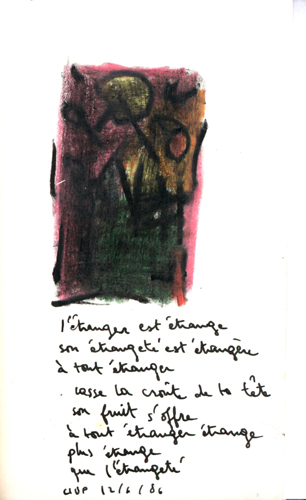 l'étranger est étrange
son étrangeté est étrangère
à tout étranger
. casse la croûte de ta tête
son fruit s'offre
à tout étranger étrange
plus étrange
que l'étrangeté
12/6/86